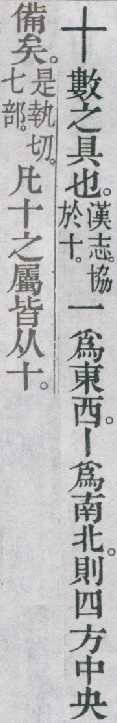 十數之具也。漢志。協於十。一爲東西。丨爲南北。則四方中央
備矣。是執切。七部。凡十之屬皆从十。